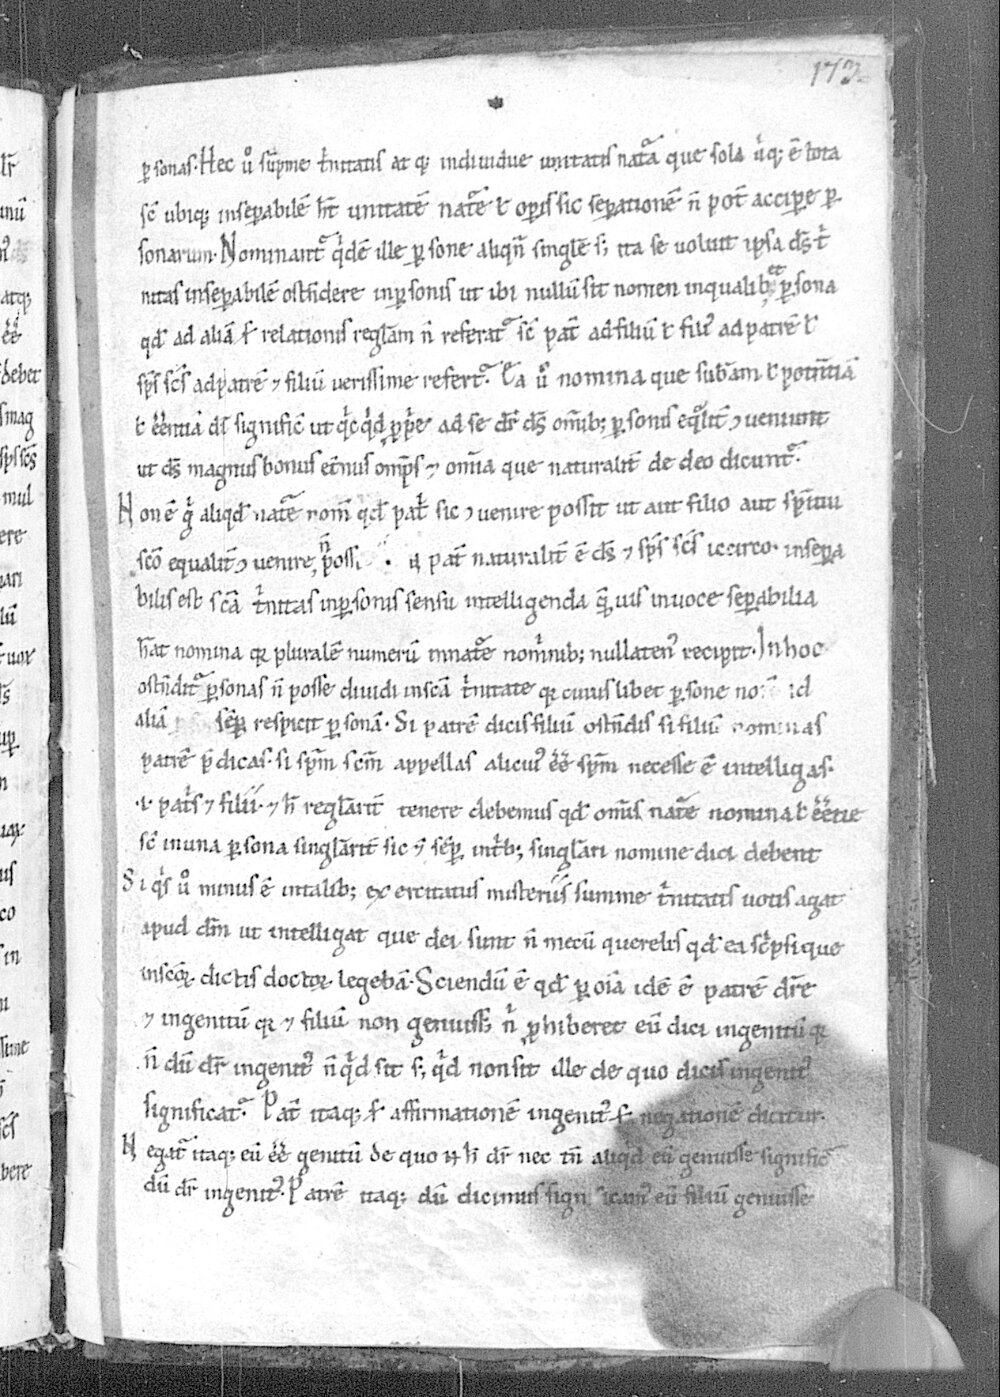 173
p̱sonas. Hec ů sūp̄me t̓nitatis at q; indiuidue unitatis nat͛a que sola ub̓iq; ē tota
sc̄ ubiq; insep̱abilē h̄t unitatē nat͛e ł op̱is sic sep̱ationē n̄ pot̄ accip̱e p̱
sonarum. Nominant͛ q̓dē ille p̱sone aliqn̄ singlē s; ita se uoluit ipsa d̄s t̓
nitas insep̱abilē ostn̄dere inp̱sonis ut ibi nullū sit nomen inqualibet p̱sona
qd̄ ad aliā s̄ relationis reglam n̄ referat͛ sc̄ pat̄ ad filiū ł filiꝰ ad patrē ł
sp̄s sc̄s ad patrē ⁊ filiū uerissime refert͛. Ea ů nomina que sub̄am ł potn̄tiā
ł ēēntiā dī significn̄t ut q̓cq̓d ꝓp̓e ad se dr̄ d̄s om̄ib; p̱sonis eq̓lit̄ ꝯueniunt
ut d̄s magnus bonus et̄nus omp̄s ⁊ om̄ia que naturalit̄ de deo dicunt͛.
Non ē g̓ aliqd̄ nat͛e nom̄ qd̄ pat̓ sic ꝯuenire possit ut aut filio aut sp̄ritui
sc̄o equalit̄ ꝯuenire n̄ possit. pat̄ naturalit̄ ē d̄s ⁊ sp̄s sc̄s iccirco. insep̱a
bilis est sc̄a t̓nitas inp̱sonis sensu intelligenda q̄uis inuoce sep̱abilia
h̄at nomina qr pluralē numerū innat͛e nom̓nib; nullatenꝰ recipit. In hoc
ostn̄dit͛ p̱sonas n̄ posse diuidi inscā t̓nitate qr cuiuslibet p̱sone nom̄ ad
aliā semp̱ respicit p̱sonā. Si patrē dicis filiū ostn̄dis si filiū nominas
patrē p̄dicas. si sp̄m sc̄m appellas alicuiꝰ ēē sp̄m necesse ē intelligas.
.i. pat̓s ⁊ filii. ⁊ h̄ reglarit̄ tenere debemus qd̄ om̄is nat͛e nomina ł ēēntie
sc̄ inuna p̱sona singlarit̄ sic ⁊ semp̱ int̓b; singlari nomine dici debent
Si q̓s ů minus ē intalib; exercitatus misteriis summe t̓nitatis uotis agat
apud dm̄ ut intelligat que dei sunt n̄ mecū querelis qd̄ ea sc̓psi que
inscor̄ dictis doctor̄ legebā. Sciendū ē qd̄ p̱ oīa idē ē patrē dr̄e
⁊ ingenitū qr ⁊ filiū non genuiss; n̓ ꝓhiberet eū dici ingenitū qr
n̄ dū dr̄ ingenitꝰ n̄ q̓d sit s; q̓d non sit ille de quo dicis ingenitꝰ
significat͛. Pat̄ itaq; s̄ affirmationē ingenitꝰ s̄ negationē dicitur.
Negat͛ itaq; eū ēē genitū de quo h̄ dr̄ nec tn̄ aliq̓d eū genuisse significat
dū dr̄ ingenitꝰ. Patrē itaq; dū dicimus significamꝰ eū filiū genuisse